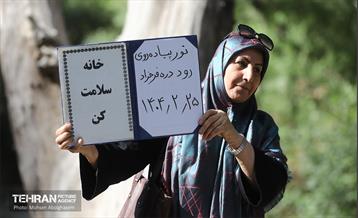 تور پیاده‌روی
رود دره فرحزاد
۱۴۰۴،۲،۲۵
خانه
سلامت
کن
TEHRAN PICTURE AGENCY
Photo: Mohsen Abolghasem